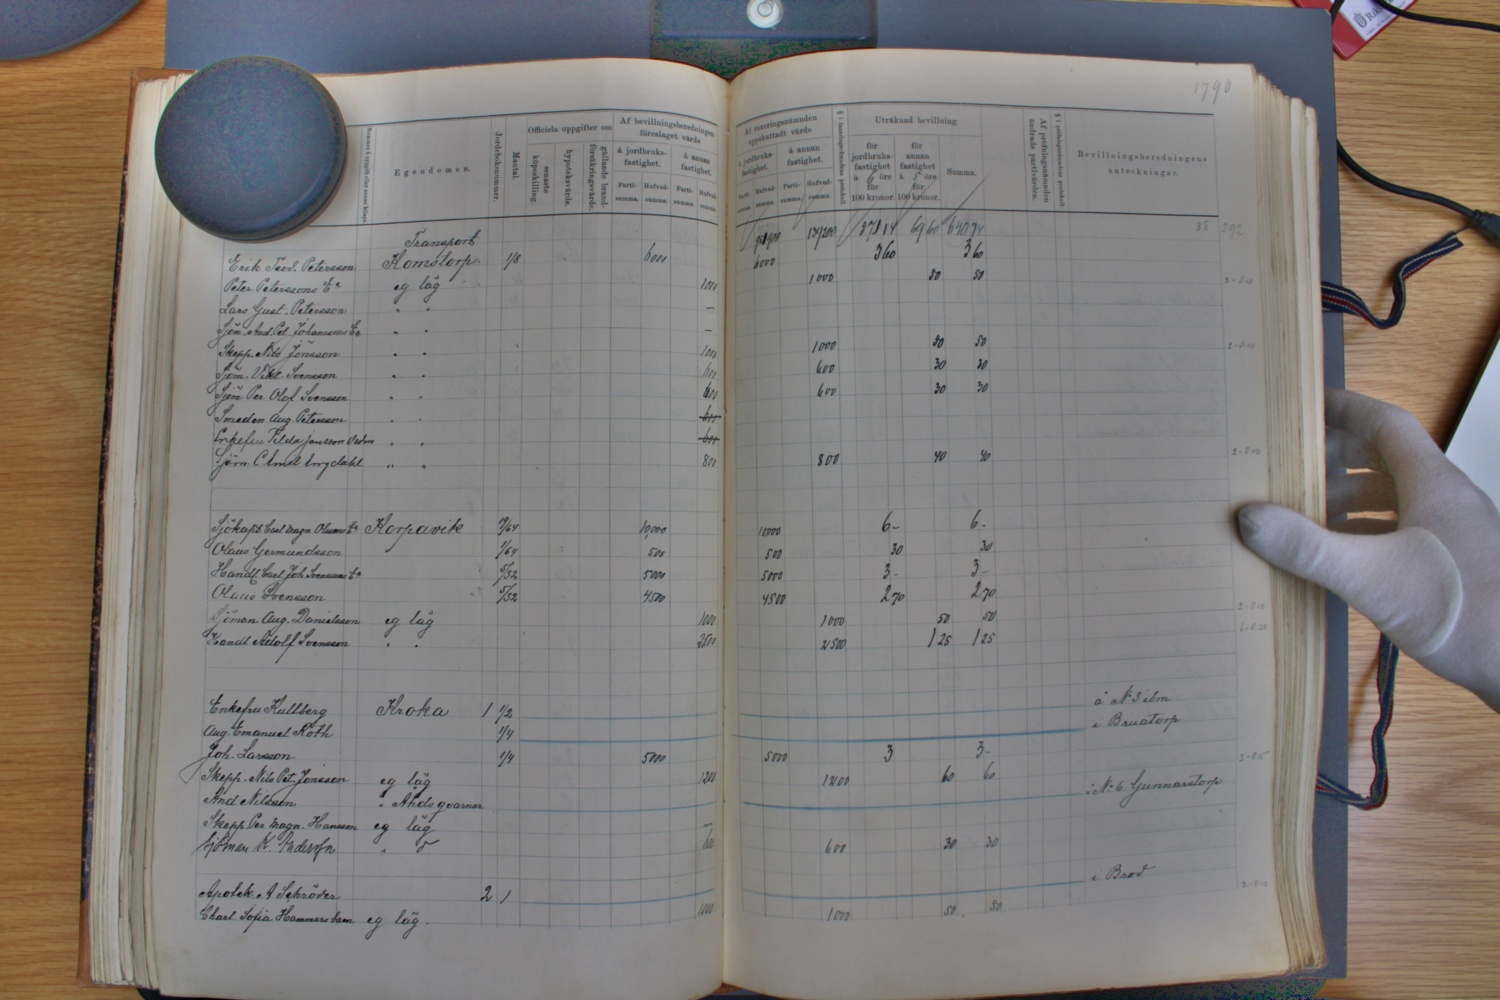 1790
Egendomen.
Jordeboksnummer.
Mantal.
Officiela uppgifter om
senaste köpeskilling.
hypoteksvärde.
gällande brandförsäkringsvärde.
Af bevillningsberedningen föreslaget värde
å jordbruksfastighet.
å annan fastighet.
Partisumma.
Hufvudsumma.
Partisumma.
Hufvudsumma.
Af taxeringsnämnden uppskattadt värde
å jordbruksfastighet.
å annan fastighet.
Partisumma.
Hufvudsumma.
Partisumma.
Hufvudsumma.
Uträknad bevillning
för jordbruksfastighet à 6 öre för 100 kronor.
för annan fastighet à 5 öre för 100 kronor.
Summa.
Af pröfningsnämnden ändrade partivärden.
Bevillningsberedningens anteckningar.
Transport 139200
Erik Teod. Petersson Komstorp 1/8 6000 6000 3 60 3 60
Peter Peterssons Ea eg läg 1000 1000 50 50
Lars Gust. Petersson " " –
Sjöm. And. Pet. Johanssons Ea " " –
Skepp. Nils Jönsson " " 1000 1000 50 50
Sjöm. Vikt. Svensson " " 600 600 30 30
Sjöm Per Olof Svensson " " 600 600 30 30
Smeden Aug Petersson " " 600
Enkefru Hilda Jansson " " 600
Sjöm. C Emil Engdahl " " 800 800 40 40
Sjökapt. Carl Magn Olssons Ea Korpavik 10,000 10000 6 – 6 –
Olaus Germundsson 1/64 500 500 30 30
Handl Carl Joh Svenssons Ea 5/32 5000 5000 3 – 3 –
Olaus Svensson 5/32 4500 4500 2 70 2 70
Sjöman Aug. Danielsson eg läg 1000 1000 50 50
Handl Adolf Svensson " " 2500 2500 1 25 1 25
Enkefru Kullberg Kroka 1 1/2 å No 3 ibm
Aug. Emanuel Roth 1/4 i Bruatorp
Joh. Larsson 1/4 5000 5000 3 3 –
Skepp. Nils Pet. Jonsson eg läg 1200 1200 60 60
And Nilsson " Åhdsqvarnen i No 6 Gunnarstorp
Skepp Per Magn. Hansson eg läg –
Sjöman K. Petersson " " 600 600 30 30
Apotek. A Schröder 2 1 i Brod
Charl. Sofia Hammarstam eg läg. 1000 1000 50 50